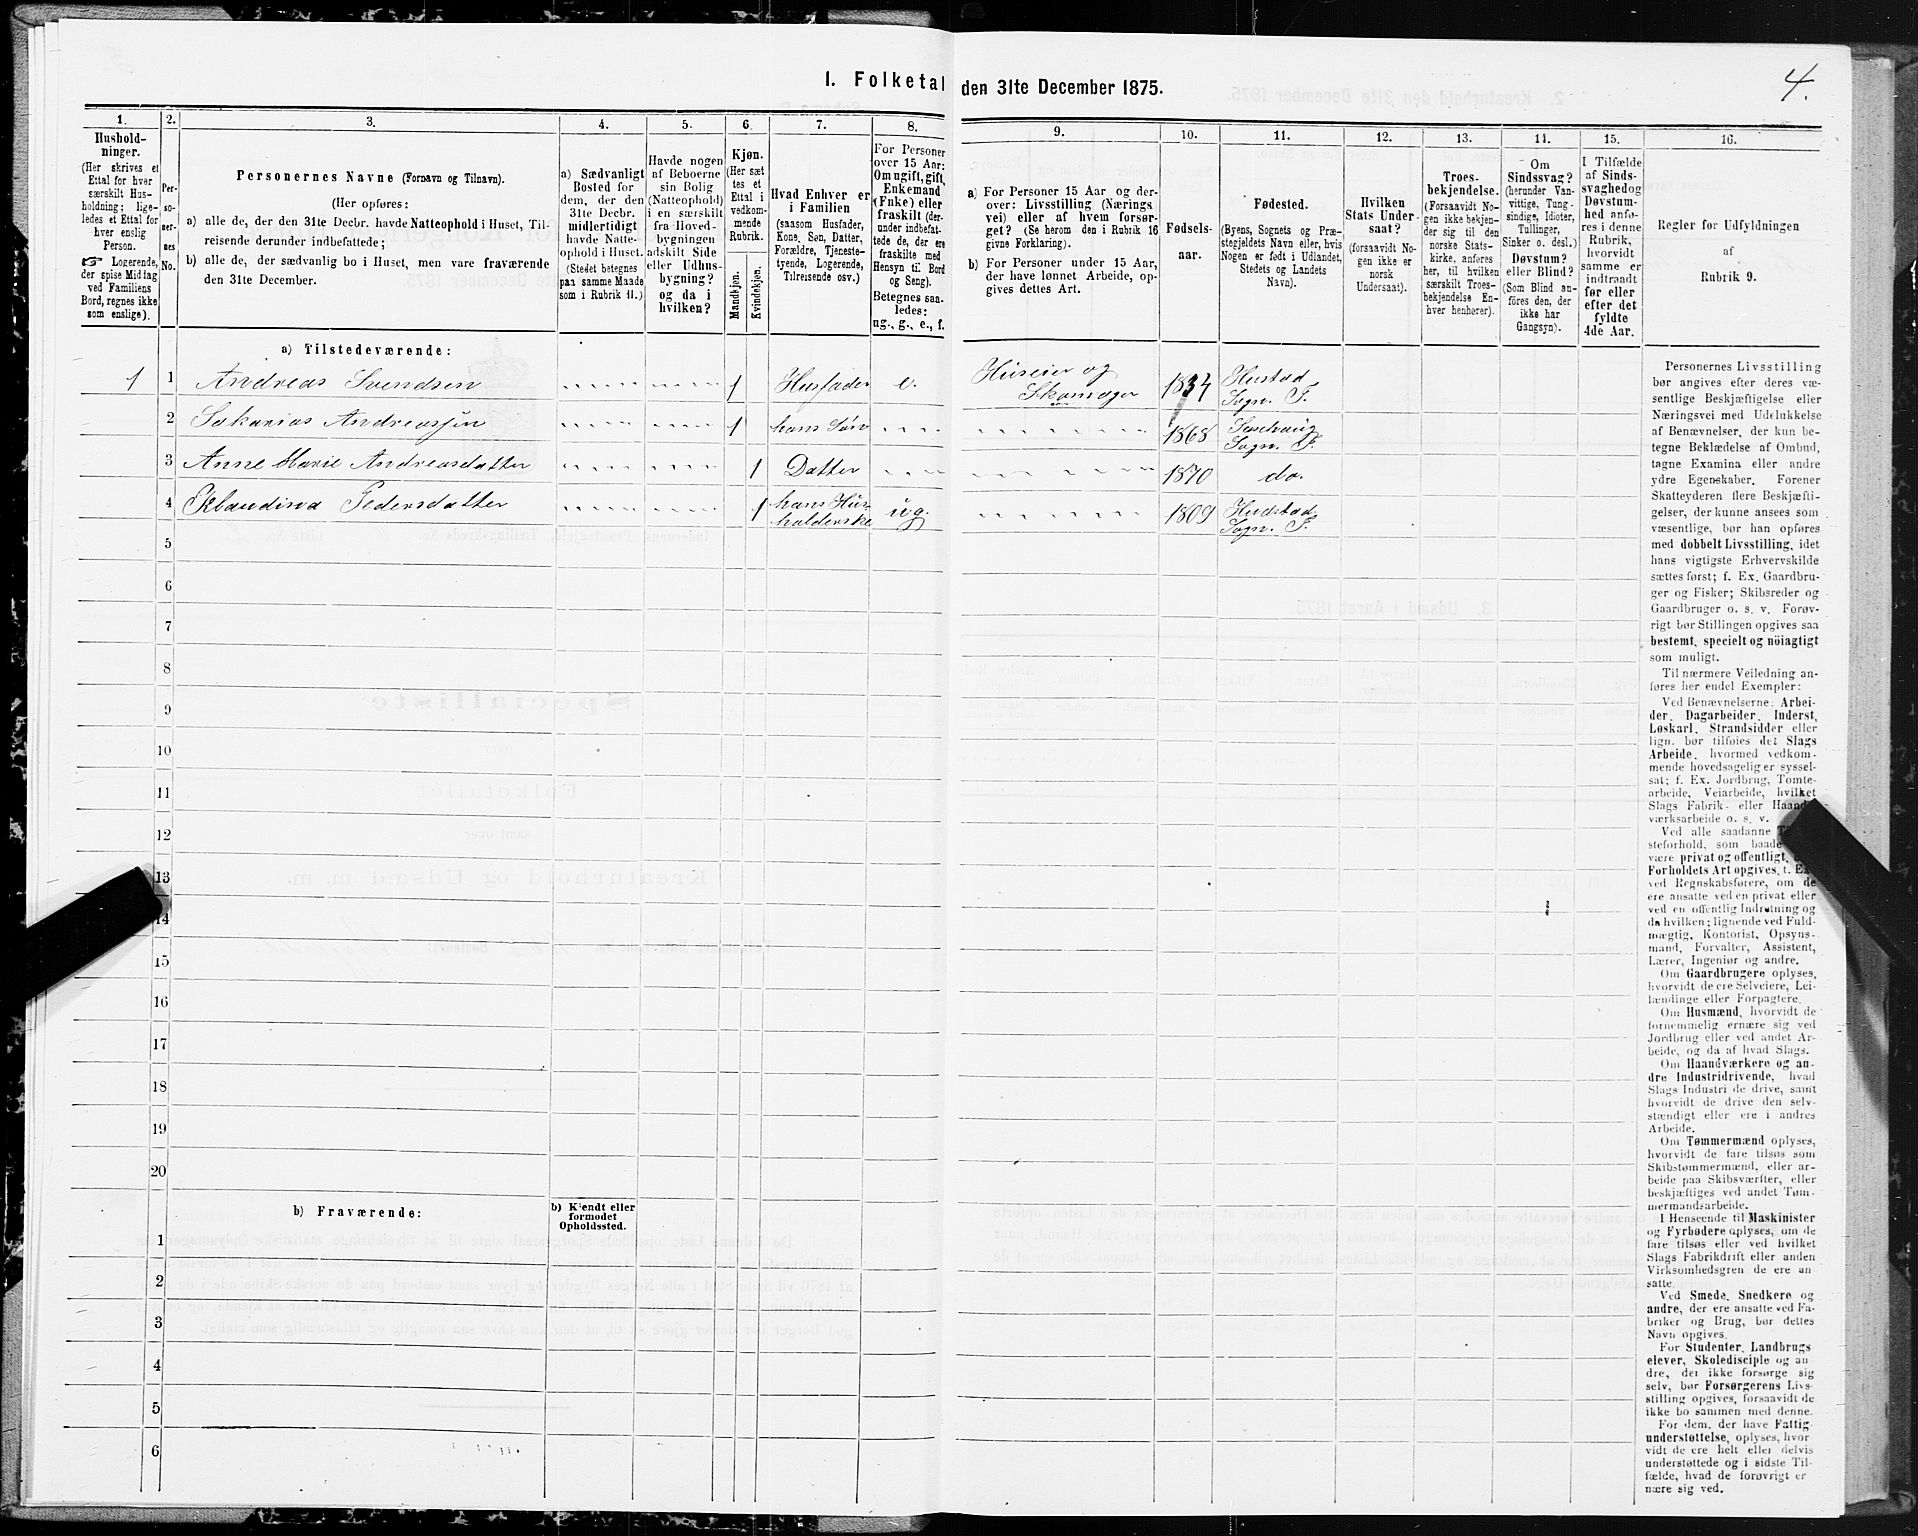 4.
I. Folketal den 31te December 1875.
1. 2. 3. 4. 5. 6. 7. 8. 9. 10. 11. 12. 13. 14. 15. 16.
Hushold-
ninger.
(Her skrives et
Ettal for hver
særskilt Hus-
holdning; lige-
ledes et Ettal for
hver enslig
Person.
☞ Logerende,
der spise Middag
ved Familiens
Bord, regnes ikke
som enslige).
Per-
so-
ner-
nes
No.
Personernes Navne (Fornavn og Tilnavn).
(Her opføres:
a) alle de, der den 31te Decbr. havde Natteophold i Huset, Til-
reisende derunder indbefattede;
b) alle de, der sædvanlig bo i Huset, men vare fraværende
den 31te December.
a) Sædvanligt
Bosted for
dem, der den
31te Decbr.
midlertidigt
havde Natte-
ophold i Huset.
(Stedet betegnes
paa samme Maade
som i Rubrik 11.)
Havde nogen
af Beboerne
sin Bolig
(Natteophold)
i en særskilt
fra Hoved-
bygningen
adskilt Side
eller Udhus-
bygning?
og da i
hvilken?
Kjøn.
(Her sæt
tes et
Ettal i
vedkom-
mende
Rubrik.
Mandkjøn.
Kvindekjøn.
Hvad Enhver er
i Familien
(saasom Husfader,
Kone, Søn, Datter,
Forældre, Tjeneste-
tyende, Logerende,
Tilreisende osv.)
For Personer
over 15 Aar:
Om ugift, gift,
Enkemand
(Enke) eller
fraskilt (der-
under indbefat-
tede de, der ere
fraskilte med
Hensyn til Bord
og Seng).
Betegnes saa-
ledes:
ug., g., e., f.
a) For Personer 15 Aar og der-
over: Livsstilling (Nærings
vei) eller af hvem forsør-
get? (Se herom den i Rubrik 16
givne Forklaring).
b) For Personer under 15 Aar,
der have lønnet Arbeide, op-
gives dettes Art.
Fødsels-
aar.
Fødested.
(Byens, Sognets og Præ-
stegjeldets Navn eller, hvis
Nogen er født i Udlandet,
Stedets og Landets
Navn).
Hvilken
Stats Under-
saat?
(forsaavidt No-
gen ikke er
norsk
Undersaat).
Troes-
bekjendelse.
(Forsaavidt No-
gen ikke bekjen-
der sig til den
norske Stats-
kirke, anføres
her, til hvilken
særskilt Troes-
bekjendelse En-
hver henhører).
Om
Sindssvag?
(herunder Van-
vittige, Tung-
sindige, Idioter,
Tullinger,
Sinker o. desl.)
Døvstum?
eller Blind?
(Som Blind an-
føres den, der
ikke har
Gangsyn).
I Tilfælde
af Sinds-
svaghed og
Døvstum-
hed anfø-
res i denne
Rubrik,
hvorvidt
samme er
indtraadt
før eller
efter det
fyldte
4de Aar.
Regler for Udfyldningen
af
Rubrik 9.
a) Tilstedeværende:
1 1 Andreas Svendsen 1 Husfader e. Huseier og Skomager 1834 Hustad Sogn. F.
2 Sakarias Andreassen 1 hans Søn 1868 Sogn. F.
3 Anne Marie Andreasdatter 1 Datter 1870 do.
4 Klaudina Pedersdatter 1 hans Hus-
holderske ug. 1809 Hudstad Sogn. F.
5
6
7
8
9
10
11
12
13
14
15
16
17
18
19
20
b) Fraværende:
b) Kjendt eller
formodet
Opholdssted.
1
2
3
4
5
6
Personernes Livsstilling
bør angives efter deres væ-
sentlige Beskjæftigelse eller
Næringsvei med Udelukkelse
af Benævnelser, der kun be-
tegne Beklædelse af Ombud,
tagne Examina eller andre
ydre Egenskaber. Forener
Skatteyderen flere Beskjæfti-
gelser, der kunne ansees som
væsentlige, bør han opføres
med dobbelt Livsstilling, idet
hans vigtigste Erhvervskilde
sættes først; f. Ex. Gaardbru-
ger og Fisker; Skibsreder og
Gaardbruger o. s. v. Forøv-
rigt bør Stillingen opgives saa
bestemt, specielt og nöiagtigt
som muligt.
Til nærmere Veiledning an-
føres her endel Exempler:
Ved Benævnelserne: Arbei-
der, Dagarbeider, Inderst,
Løskarl, Strandsidder eller
lign. bør tilføies det Slags
Arbeide, hvormed vedkom-
mende hovedsagelig er syssel-
sat; f. Ex. Jordbrug, Tomte-
arbeide, Veiarbeide, hvilket
Slags Fabrik- eller Haand-
værksarbeide o. s. v.
Ved alle saadanne
steforhold, som baade
være privat og offentligt,
Forholdets Art opgives, f. Ex
ved Regnskabsførere, om de
ere ansatte ved en privat eller
ved en offentlig Indretning og
da hvilken; lignende ved Fuld-
mægtig, Kontorist, Opsyns-
mand, Forvalter, Assistent,
Lærer, Ingeniør og andre.
Om Gaardbrugere oplyses,
hvorvidt de ere Selveiere, Lei-
lændinge eller Forpagtere.
Om Husmænd, hvorvidt de
fornemmelig ernære sig ved
Jordbrug eller ved andet Ar-
beide, og da af hvad Slags.
Om Haandværkere og an-
dre Industridrivende, hvad
Slags Industri de drive, samt
hvorvidt de drive den selv-
stændigt eller ere i andres
Arbeide.
Om Tømmermænd oplyses,
hvorvidt de fare tilsøs som
Skibstømmermænd, eller ar-
beide paa Skibsværfter, eller
beskjæftiges ved andet Tøm-
mermandsarbeide.
I Henseende til Maskinister
og Fyrbødere oplyses, om de
fare tilsøs eller ved hvilket
Slags Fabrikdrift eller anden
Virksomhedsgren de ere an-
satte.
Ved Smede, Snedkere og
andre, der ere ansatte ved Fa-
briker og Brug, bør dettes
Navn opgives.
For Studenter, Landbrugs
elever, Skoledisciple og an
dre, der ikke forsørge sig
selv, bør Forsørgerens Livs-
stilling opgives, forsaavidt de
ikke bo sammen med denne.
For dem, der have Fattig-
understøttelse, oplyses, hvor
vidt de ere helt eller delvis
understøttede og i sidste Til-
fælde, hvad de forøvrigt er
nære sig ved.